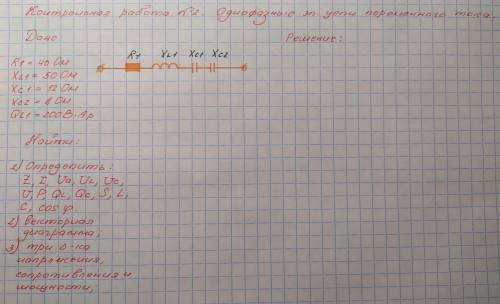 Контрольная работа №2. Однофазные эл цепи переменного тока
Дано
Решение:
R1 XL1 XC1 XC2
R1 = 40 Ом
XL1 = 50 Ом
XC1 = 12 Ом
XC2 = 8 Ом
QL1 = 200 В·Ар
Найти:
1) Определить:
Z, I, Ua, UL, Uc,
U, P, QL, Qc, S, L,
C, cos φ
2) Векторная
диаграмма;
3) три Δ-ка
напряжения,
сопротивления и
мощности,